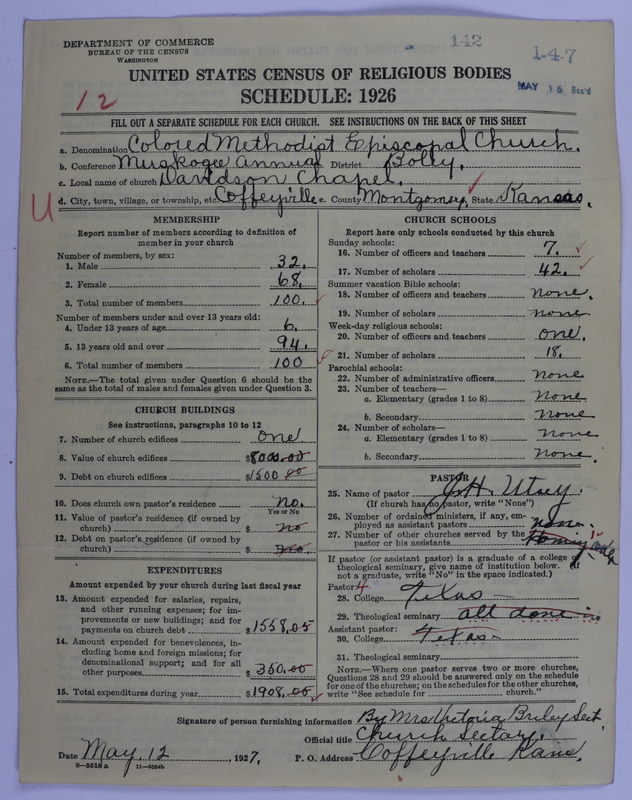 DEPARTMENT OF COMMERCE
BUREAU OF THE CENSUS
WASHINGTON
142
1.4.7
12
MAY 16 Rec'd
UNITED STATES CENSUS OF RELIGIOUS BODIES
SCHEDULE: 1926
FILL OUT A SEPARATE SCHEDULE FOR EACH CHURCH. SEE INSTRUCTIONS ON THE BACK OF THIS SHEET
a. Denomination Colored Methodist Episcopal Church.
b. Conference Muskogee Annual District Bolly.
c. Local name of church Davidson Chapel.
U
d. City, town, village, or township, etc. Coffeyville e. County Montgomery. State Kansas.
MEMBERSHIP
Report number of members according to definition of
member in your church
Number of members, by sex:
1. Male 32.
2. Female 68.
3. Total number of members 100.
Number of members under and over 13 years old:
4. Under 13 years of age 6.
5. 13 years old and over 94.
6. Total number of members 100
NOTE.—The total given under Question 6 should be the
same as the total of males and females given under Question 3.
CHURCH BUILDINGS
See instructions, paragraphs 10 to 12
7. Number of church edifices one
8. Value of church edifices $8000.00
9. Debt on church edifices $1500.00
10. Does church own pastor's residence no.
Yes or No
11. Value of pastor's residence (if owned by
church) $ no
12. Debt on pastor's residence (if owned by
church) $ no.
EXPENDITURES
Amount expended by your church during last fiscal year
13. Amount expended for salaries, repairs,
and other running expenses; for im-
provements or new buildings; and for
payments on church debt $1558.05
14. Amount expended for benevolences, in-
cluding home and foreign missions; for
denominational support; and for all
other purposes $350.00
15. Total expenditures during year $1908.05
CHURCH SCHOOLS
Report here only schools conducted by this church
Sunday schools:
16. Number of officers and teachers 7.
17. Number of scholars 42.
Summer vacation Bible schools:
18. Number of officers and teachers none.
19. Number of scholars none
Week-day religious schools:
20. Number of officers and teachers one.
21. Number of scholars 18.
Parochial schools:
22. Number of administrative officers none
23. Number of teachers—
a. Elementary (grades 1 to 8) none
b. Secondary none
24. Number of scholars—
a. Elementary (grades 1 to 8) none
b. Secondary none.
PASTOR
25. Name of pastor J.H. Utsey.
(If church has no pastor, write "None")
26. Number of ordained ministers, if any, em-
ployed as assistant pastors none.
27. Number of other churches served by the
pastor or his assistants one
If pastor (or assistant pastor) is a graduate of a college or
theological seminary, give name of institution below. (If
not a graduate, write "No" in the space indicated.)
Pastor: 4
28. College Texas
29. Theological seminary all done in
Assistant pastor:
30. College Texas
31. Theological seminary
NOTE.—Where one pastor serves two or more churches,
Questions 28 and 29 should be answered only on the schedule
for one of the churches; on the schedules for the other churches,
write "See schedule for church."
Signature of person furnishing information By Mrs Victoria Briley Sect.
Official title Church Sectary.
Date May. 12, 1927, P. O. Address Coffeyville Kans.
8—5518a 11—9084b